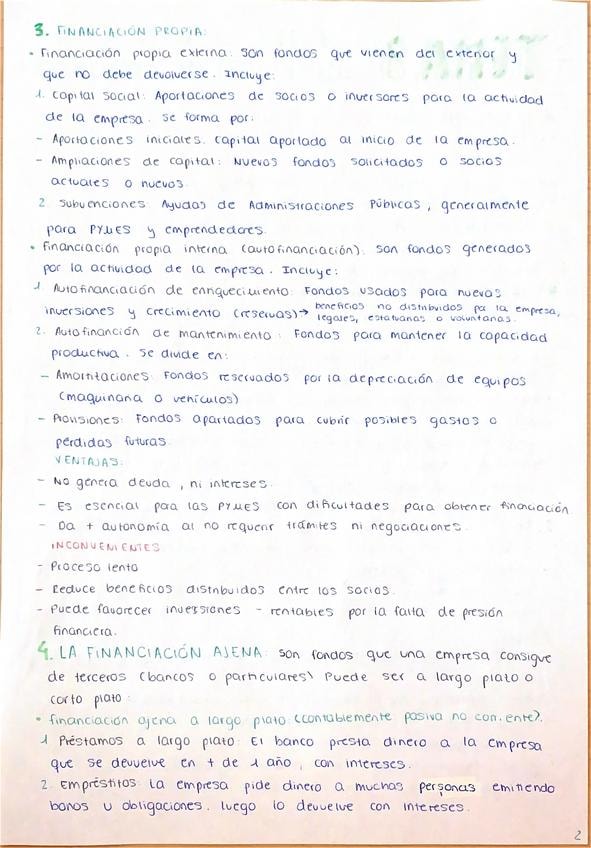 3. FINANCIACIÓN PROPIA:
• Financiación propia externa: Son fondos que vienen del exterior y
que no debe devolverse. Incluye:
1. Capital Social: Aportaciones de socios o inversores para la actividad
de la empresa. Se forma por:
- Aportaciones iniciales. Capital aportado al inicio de la empresa.
- Ampliaciones de capital: Nuevos fondos solicitados o socios
actuales o nuevos.
2. Subvenciones. Ayudas de Administraciones Públicas, generalmente
para PYMES y emprendedores.
• Financiación propia interna (autofinanciación). Son fondos generados
por la actividad de la empresa. Incluye:
1. Autofinanciación de enriquecimiento: Fondos usados para nuevas
inversiones y crecimiento (reservas)→ beneficios no distribuidos por la empresa,
legales, estatuarias o voluntarias.
2. Autofinanción de mantenimiento: Fondos para mantener la capacidad
productiva. Se divide en:
- Amortitaciones: Fondos reservados por la depreciación de equipos
(maquinaria o vehículos)
- Provisiones: Fondos apartados para cubrir posibles gastos o
pérdidas futuras.
VENTAJAS:
- No genera deuda, ni intereses.
- Es esencial para las PYMES con dificultades para obtener financiación
- Da + autonomía al no requerir trámites ni negociaciones.
INCONVENIENTES
- Proceso lento
- Reduce beneficios distribuidos entre los socios.
- Puede favorecer inversiones - rentables por la falta de presión
financiera.
4. LA FINANCIACIÓN AJENA: Son fondos que una empresa consigue
de terceros (bancos o particulares) Puede ser a largo plazo o
corto plazo:
• financiación ajena a largo plazo: (contablemente pasivo no corriente).
1 Préstamos a largo plazo: El banco presta dinero a la empresa
que se devuelve en + de 1 año, con intereses.
2. Empréstitos: La empresa pide dinero a muchas personas emitiendo
bonos u obligaciones. Luego lo devuelve con intereses.
2